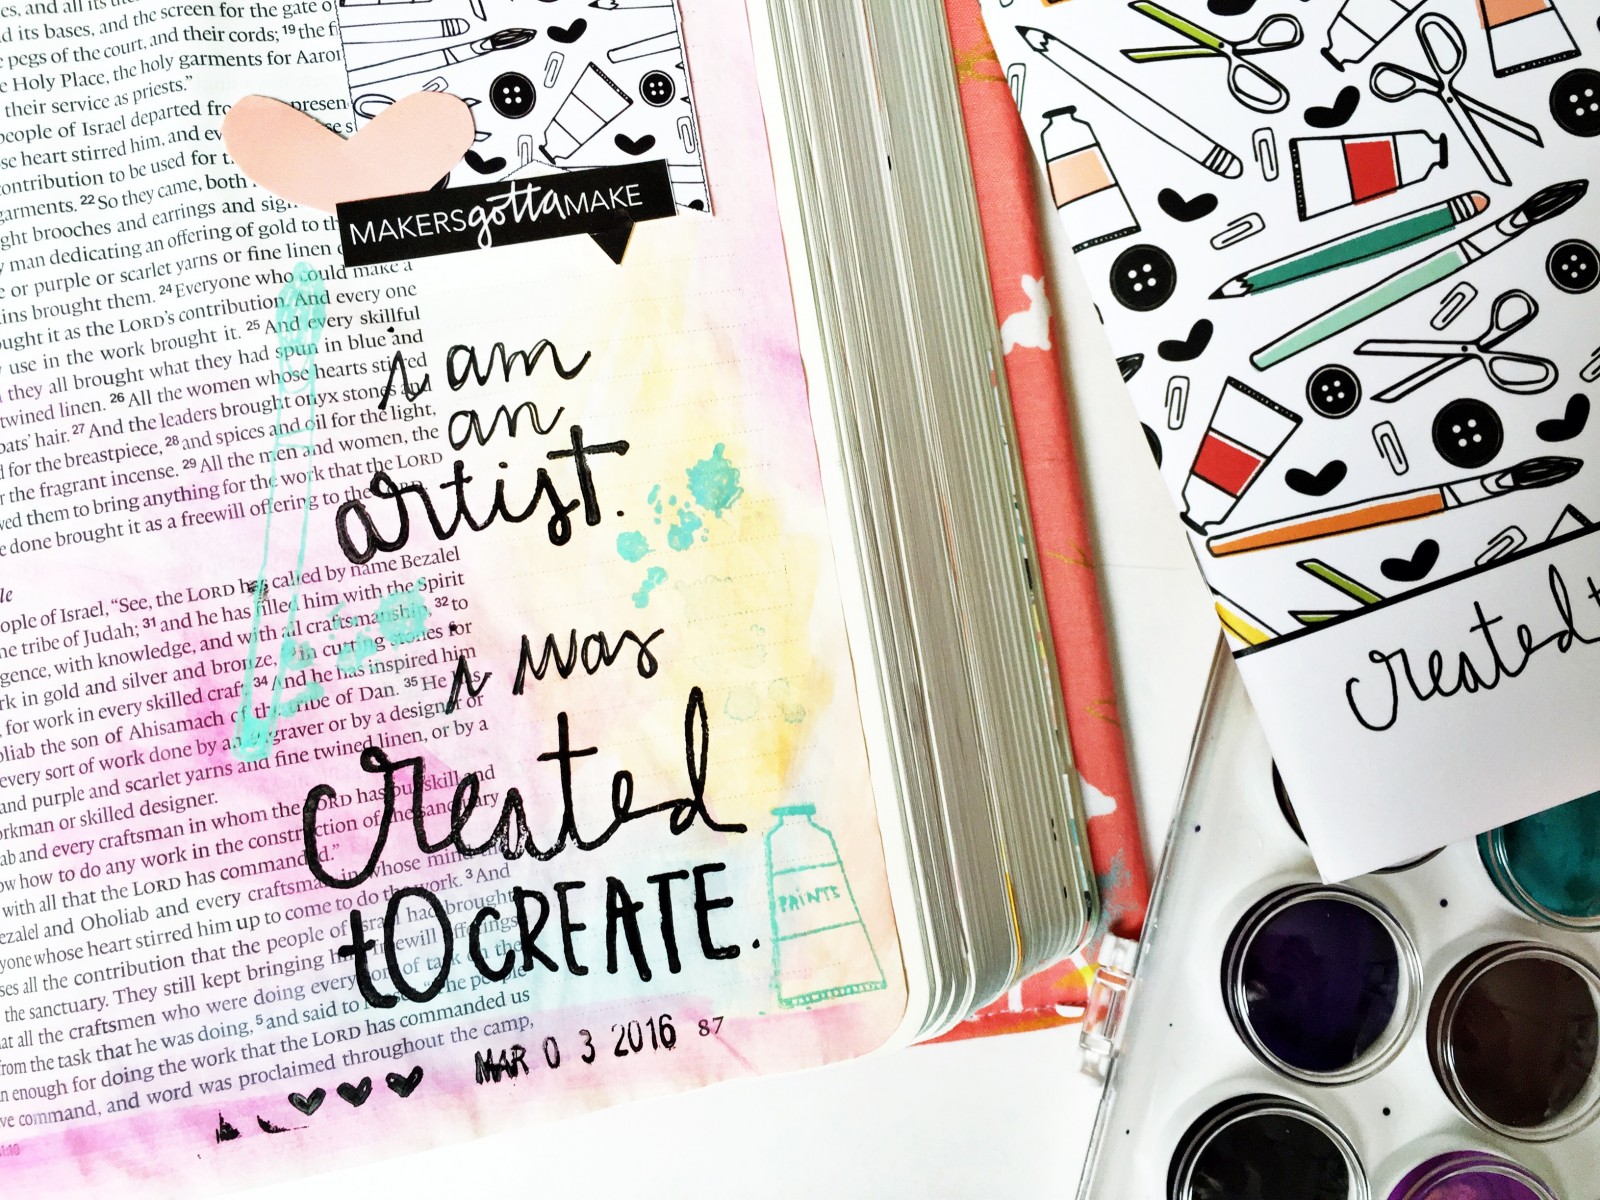 es, and all its
d its bases, and the screen for the gate o
e pegs of the court, and their cords; 19 the fi
e Holy Place, the holy garments for Aaron
their service as priests."
people of Israel departed from presen
se heart stirred him, and ev se s
contribution to be used for t
garments. 22 So they came, both
ght brooches and earrings and sig
y man dedicating an offering of gold to th
e or purple or scarlet yarns or fine linen
ins brought them. 24 Everyone who could make a
ought it as the LORD's contribution. And every one
use in the work brought it. 25 And every skillful
they all brought what they had spun in blue and
twined linen. 26 All the women whose hearts stirred
oats' hair. 27 And the leaders brought onyx stones and
d for the breastpiece, 28 and spices and oil for the light,
r the fragrant incense. 29 All the men and women, the
ved them to bring anything for the work that the LORD
e done brought it as a freewill offering to the
le
ople of Israel, "See, the LORD has called by name Bezalel
ne tribe of Judah; 31 and he has filled him with the Spirit
igence, with knowledge, and with all craftsmanship, 32 to
rk in gold and silver and bronze, in cutting stones for
, for work in every skilled craft. 34 And he has inspired him
oliab the son of Ahisamach of the tribe of Dan. 35 He has
every sort of work done by an engraver or by a designer or
and purple and scarlet yarns and fine twined linen, or by a
orkman or skilled designer.
ab and every craftsman in whom the LORD has put skill and
ow how to do any work in the construction of the sanctuary
with all that the LORD has commanded."
ezalel and Oholiab and every craftsman in whose mind the
yone whose heart stirred him up to come to do the work. 3 And
ses all the contribution that the people of Israel had brought
the sanctuary. They still kept bringing him freewill offerings
at all the craftsmen who were doing every sort of task on the
from the task that he was doing, 5 and said to Moses, "The people
n enough for doing the work that the LORD has commanded us
ve command, and word was proclaimed throughout the camp,
MAKERS gotta MAKE
i am
an
artist.
i was
created
to CREATE.
PAINTS
MAR 03 2016 87
created t